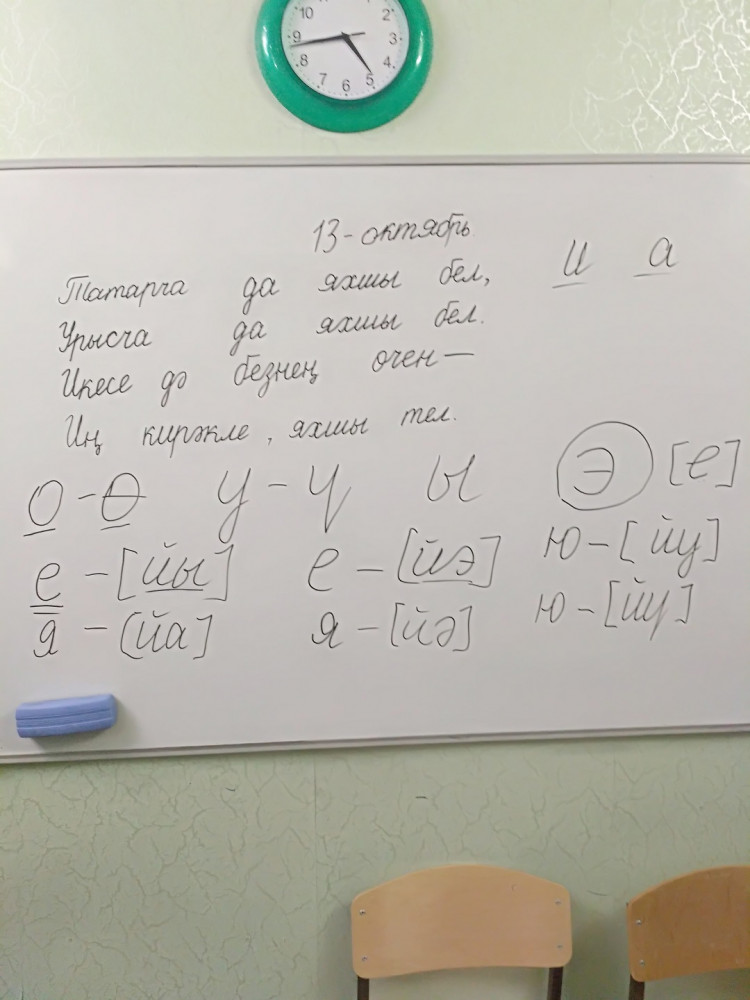 10 2 9 3 8 4 7 6 5
13-октябрь
Татарча да яхшы бел, и а
Урысча да яхшы бел.
Икесе дә безнең өчен—
Иң кирәкле, яхшы тел.
о-ө у-ү ы э [е]
е-[йы] е-[йэ] ю-[йу]
я-[йа] я-[йә] ю-[йү]